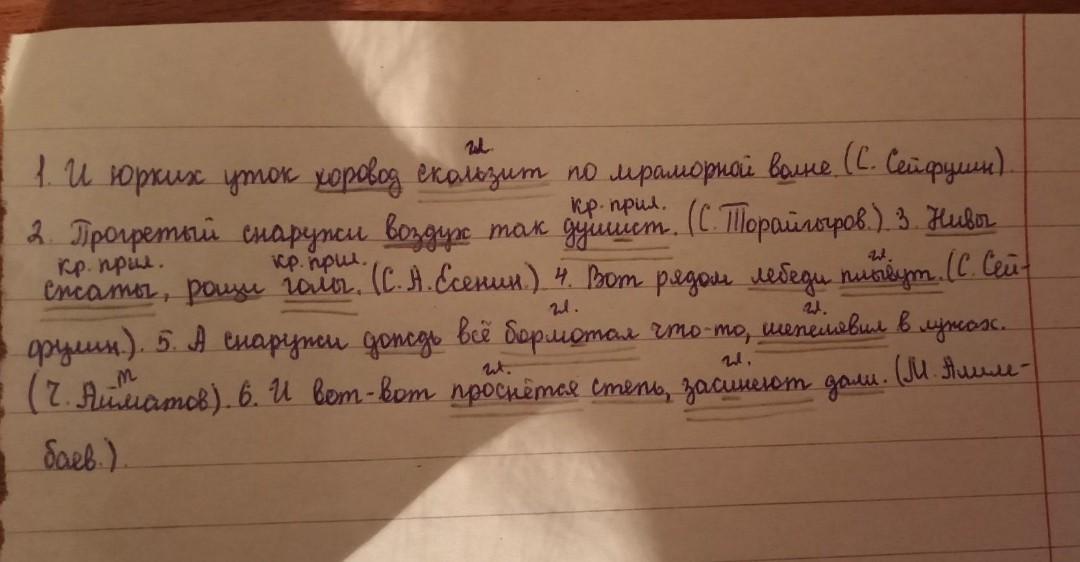 гл.
1. И юрких уток хоровод скользит по мраморной волне (С. Сейфулин).
кр. прил.
2. Прогретый снаружи воздух так душист. (С. Торайгыров.) 3. Нивы
кр. прил. кр. прил. гл.
сжаты, рощи голы. (С. А. Есенин.) 4. Вот рядом лебеди плывут. (С. Сей-
гл. гл.
фулин.). 5. А снаружи дождь всё бормотал что-то, шепелявил в лужах.
т гл. гл.
(Ч. Айматов). 6. И вот-вот проснётся степь, засинеют дали. (М. Алим-
баев.).